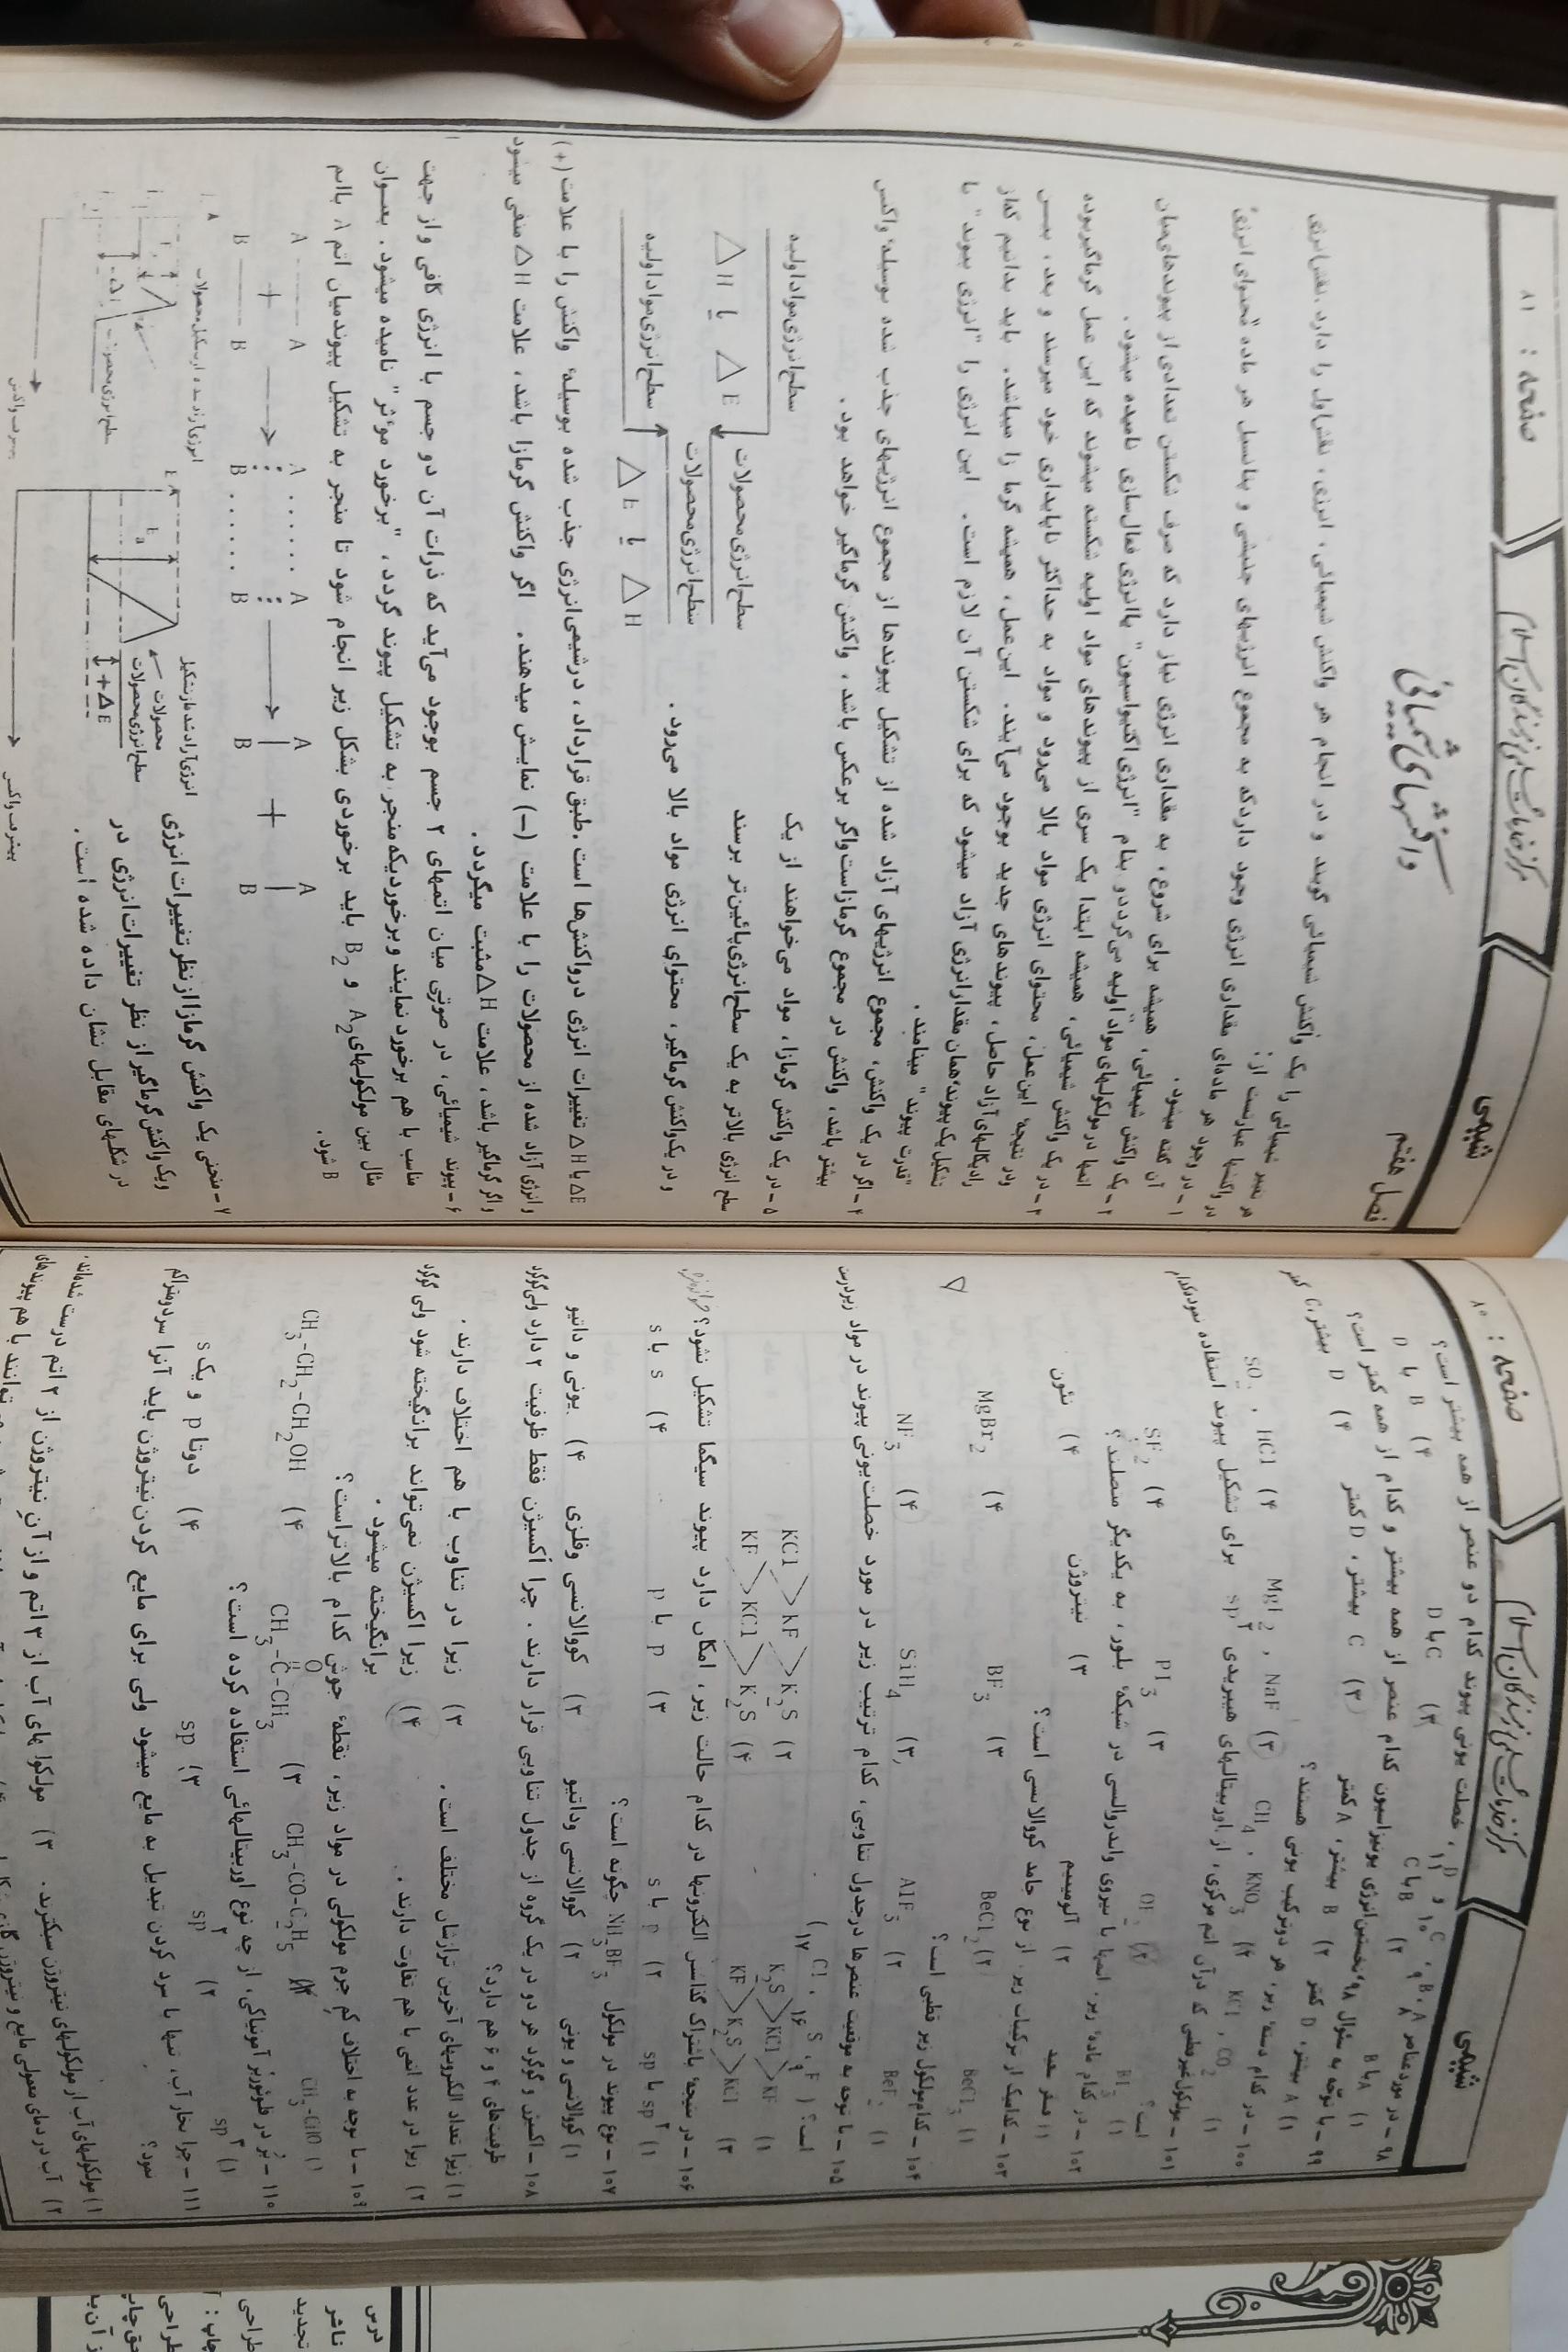 صفحه : ۸۰
مرکز خدمات علمی رزمندگان اسلام
شیمی
۹۸ – در مورد عناصر
خصلت یونی پیوند کدام دو عنصر از همه بیشتر است؟
۱) A با B
۲) B با C
۳) C با D
۴) B با D
۹۹ – با توجه به سئوال ۹۸، نخستین انرژی یونیزاسیون کدام عنصر از همه بیشتر و کدام از همه کمتر است؟
۱) A بیشتر، D کمتر
۲) B بیشتر، A کمتر
۳) C بیشتر، D کمتر
۴) D بیشتر، C کمتر
۱۰۰ – در کدام دسته زیر، هر دو ترکیب یونی هستند؟
۱) KCl , CO2
۲) CH4 , KNO3
۳) MgI2 , NaF
۴) SO2 , HCl
۱۰۱ – مولکول غیرقطبی که در آن اتم مرکزی، از اوربیتالهای هیبریدی sp۲ برای تشکیل پیوند استفاده نموده کدام
است؟
۱) BI3
۲) OF2
۳) PI3
۴) SF2
۱۰۲ – در کدام ماده زیر، اتمها با نیروی واندروالسی در شبکه بلور، به یکدیگر متصلند؟
۲) آلومینیم
۳) نیتروژن
۴) نئون
۱۰۳ – کدامیک از ترکیبات زیر، از نوع جامد کووالانسی است؟
۲) BeCl2
۳) BF3
۴) MgBr2
۱۰۴ – کدام مولکول زیر قطبی است؟
۱) BeF2
۲) AlF3
۳) SiH4
۴) NF3
۱۰۵ – با توجه به موقعیت عنصرها در جدول تناوبی، کدام ترتیب زیر در مورد خصلت یونی پیوند در مواد زیر درست
است؟ ( ۹F ، ۱۶S ، ۱۷Cl )
۱) K2S > KCl > KF
۲) KCl > KF > K2S
۳) KF > K2S > KCl
۴) KF > KCl > K2S
۱۰۶ – در نتیجه باشتراک گذاشتن الکترونها در کدام حالت زیر، امکان دارد پیوند سیگما تشکیل نشود؟
۱) sp۲ با sp
۲) p با s
۳) p با p
۴) s با s
۱۰۷ – نوع پیوند در مولکول NH3BF3 چگونه است؟
۱) کووالانسی و یونی
۲) کووالانسی و داتیو
۳) کووالانسی و فلزی
۴) یونی و داتیو
۱۰۸ – اکسیژن و گوگرد هر دو در یک گروه از جدول تناوبی قرار دارند. چرا اکسیژن فقط ظرفیت ۲ دارد ولی گوگرد
ظرفیت‌های ۴ و ۶ هم دارد؟
۱) زیرا تعداد الکترونهای آخرین ترازشان مختلف است.
۲) زیرا در عدد اتمی با هم تفاوت دارند.
۳) زیرا در تناوب با هم اختلاف دارند.
۴) زیرا اکسیژن نمی‌تواند برانگیخته شود ولی گوگرد
برانگیخته میشود.
۱۰۹ – با توجه به اختلاف کم جرم مولکولی در مواد زیر، نقطه جوش کدام بالاتر است؟
۲) CH3-CO-C2H5
۳) CH3-C-CH3
O
۴) CH3-CH2-CH2OH
۱۱۰ – بُر در فلوئورُبر آمونیاکی، از چه نوع اوربیتالهائی استفاده کرده است؟
۱) sp۳
۲) sp۲
۳) sp
۴) دوتا p و یک s
۱۱۱ – چرا بخار آب، تنها با سرد کردن تبدیل به مایع میشود ولی برای مایع کردن نیتروژن باید آنرا سرد و متراکم
نمود؟
۱) مولکولهای آب از مولکولهای نیتروژن سبکترند.
۳) مولکولهای آب از ۳ اتم و از آن نیتروژن از ۲ اتم درست شده‌اند.
صفحه : ۸۱
مرکز خدمات علمی رزمندگان اسلام
شیمی
فصل هفتم
واکنشهای شیمیائی
هر تغییر شیمیائی را یک واکنش شیمیائی گویند و در انجام هر واکنش شیمیائی، انرژی، نقش اول را دارد. نقش انرژی
در واکنشها عبارتست از:
۱ – در وجود هر ماده‌ای مقداری انرژی وجود دارد که به مجموع انرژیهای جنبشی و پتانسیل هر ماده "محتوای انرژی"
آن گفته میشود.
۲ – یک واکنش شیمیائی، همیشه برای شروع، به مقداری انرژی نیاز دارد که صرف شکستن تعدادی از پیوندهای میان
اتمها در مولکولهای مواد اولیه می‌گردد و بنام "انرژی اکتیواسیون" یا انرژی فعال‌سازی نامیده میشود.
۳ – در یک واکنش شیمیائی، همیشه ابتدا یک سری از پیوندهای مواد اولیه شکسته میشوند که این عمل گرماگیر بوده
و در نتیجه این عمل، محتوای انرژی مواد بالا می‌رود و مواد به حداکثر ناپایداری خود میرسند و بعد، بین
رادیکالهای آزاد حاصل، پیوندهای جدید بوجود می‌آیند. این عمل، همیشه گرما زا میباشد. باید بدانیم که از
تشکیل یک پیوند، همان مقدار انرژی آزاد میشود که برای شکستن آن لازم است. این انرژی را "انرژی پیوند" یا
"قدرت پیوند" مینامند.
۴ – اگر در یک واکنش، مجموع انرژیهای آزاد شده از تشکیل پیوندها از مجموع انرژیهای جذب شده بوسیله واکنش
بیشتر باشد، واکنش در مجموع گرمازاست و اگر برعکس باشد، واکنش گرماگیر خواهد بود.
۵ – در یک واکنش گرمازا، مواد می‌خواهند از یک
سطح انرژی بالاتر به یک سطح انرژی پائین‌تر برسند
سطح انرژی مواد اولیه
ΔH یا ΔE
سطح انرژی محصولات
و در یک واکنش گرماگیر، محتوای انرژی مواد بالا می‌رود.
سطح انرژی محصولات
سطح انرژی مواد اولیه
ΔE یا ΔH
ΔE یا ΔH تغییرات انرژی در واکنش‌ها است. طبق قرارداد، در شیمی انرژی جذب شده بوسیله واکنش را با علامت (+)
و انرژی آزاد شده از محصولات را با علامت (–) نمایش میدهند. اگر واکنش گرمازا باشد، علامت ΔH منفی میشود
و اگر گرماگیر باشد، علامت ΔH مثبت میگردد.
۶ – پیوند شیمیائی، در صورتی میان اتمهای ۲ جسم بوجود می‌آید که ذرات آن دو جسم با انرژی کافی و از جهت
مناسب با هم برخورد نمایند و برخوردیکه منجر به تشکیل پیوند گردد، "برخورد موثر" نامیده میشود. بعنوان
مثال بین مولکولهای A2 و B2 باید برخوردی بشکل زیر انجام شود تا منجر به تشکیل پیوند میان اتم A با اتم
B شود.
A A A ...... A A A
+ +
B B B ...... B B B
۷ – منحنی یک واکنش گرمازا از نظر تغییرات انرژی
و یک واکنش گرماگیر از نظر تغییرات انرژی در
در شکلهای مقابل نشان داده شده است.
انرژی آزاد شده از تشکیل محصولات
سطح انرژی محصولات
+ΔE
پیشرفت واکنش
انرژی آزاد شده از تشکیل محصولات
سطح انرژی محصولات
پیشرفت واکنش